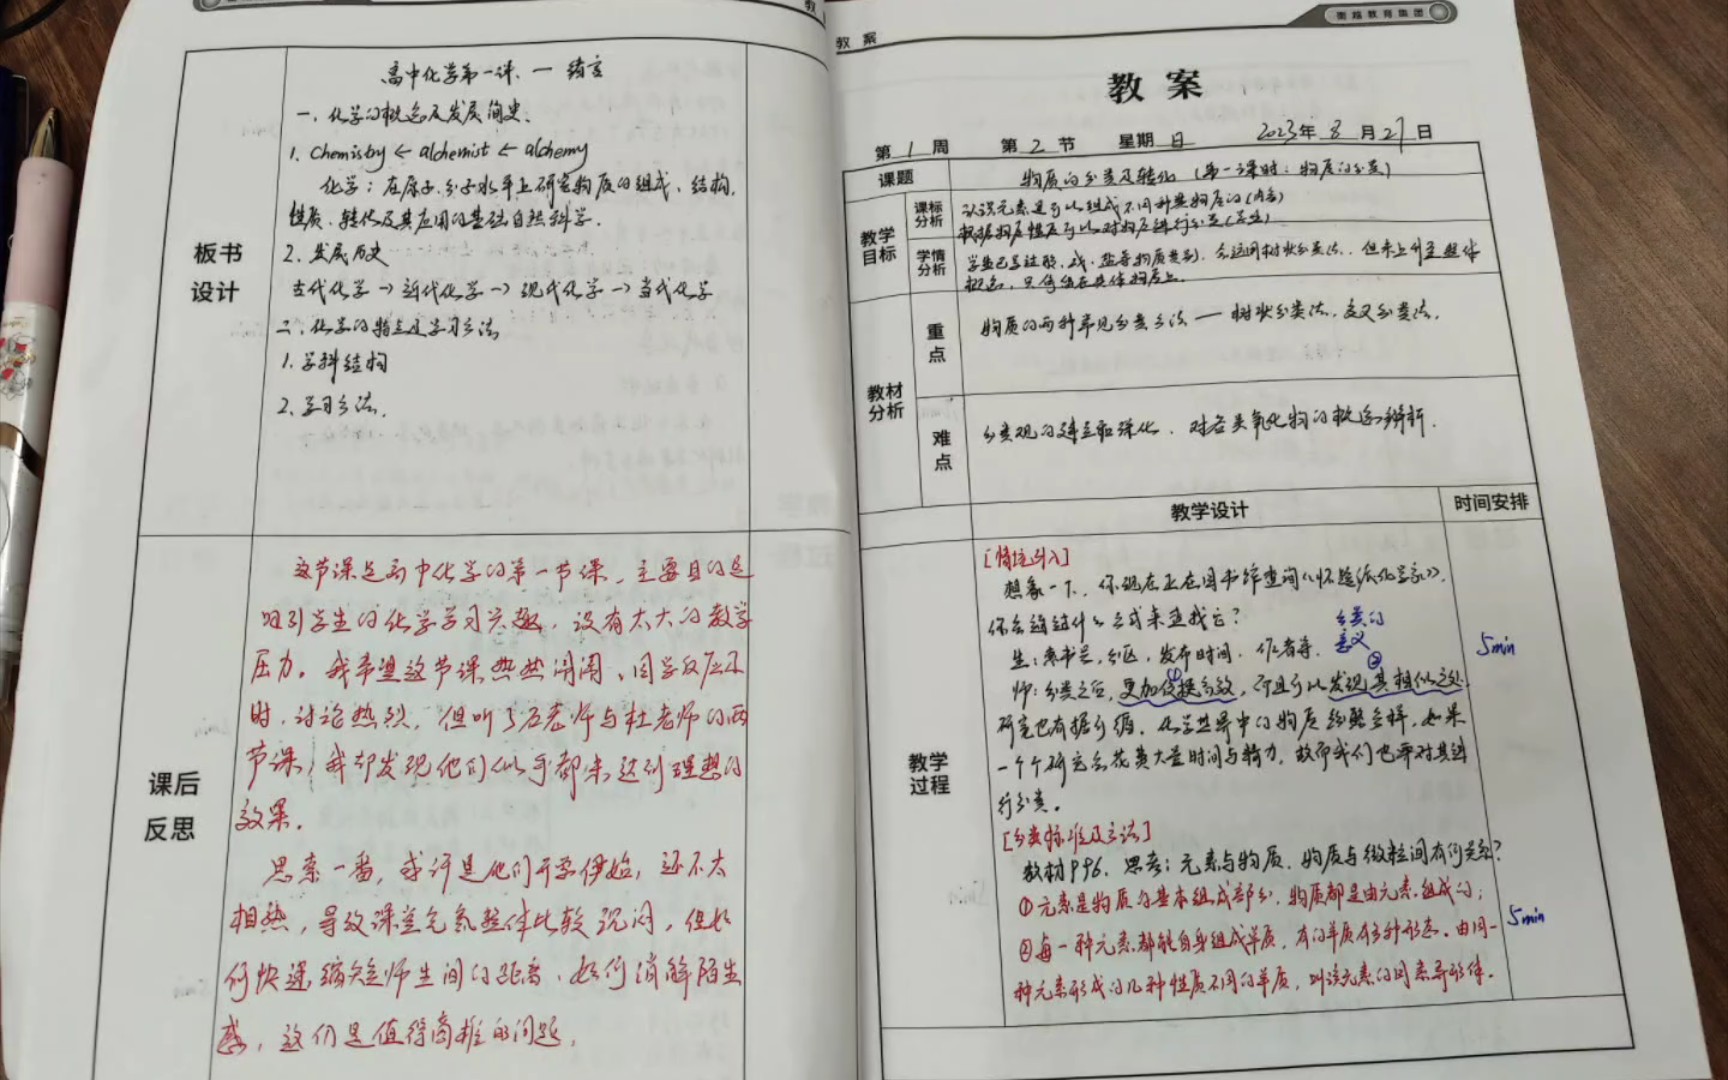 板书
设计
高中化学第一讲、— 绪言
一、化学的概念及发展简史、
1. Chemistry ← alchemist ← alchemy
化学：在原子、分子水平上研究物质的组成、结构、
性质、转化及其应用的基础自然科学.
2. 发展历史
古代化学→近代化学→现代化学→当代化学
二、化学的特点及学习方法
1. 学科结构
2. 学习方法.
课后
反思
这节课是高中化学的第一节课，主要目的是
吸引学生的化学学习兴趣，没有太大的教学
压力。我希望这节课热热闹闹、同学反应及
时、讨论热烈，但听了石老师与杜老师的两
节课，我却发现他们似乎都未达到理想的
效果.
思索一番，或许是他们开学伊始，还不太
相熟，导致课堂气氛整体比较沉闷，但如
何快速缩短师生间的距离、如何消解陌生
感，这仍是值得商榷的问题.
教案
衡越教育集团
教案
第1周 第2节 星期日 2023年8月27日
课题 物质的分类及转化（第一课时：物质的分类）
教学
目标
课标
分析
认识元素是可以组成不同种类物质的(内容)
根据物质性质可以对物质进行分类(学业)
学情
分析
学生已学过酸、碱、盐等物质类别，会运用树状分类法，但未上升至整体
概念，只停留在具体物质上.
教材
分析
重
点
物质的两种常见分类方法 — 树状分类法、交叉分类法.
难
点
分类观的建立和深化、对各类氧化物的概念辨析.
教学设计 时间安排
教学
过程
[情境引入]
想象一下，你现在正在图书馆查询《怀疑派化学家》，
你会通过什么方式来查找它？
分类的
意义
生：索书号，分区，发布时间、作者等.
5min
师：分类之后，①更加便捷高效，而且可以②发现其相似之处，
研究也有据可循。化学世界中的物质纷繁多样，如果
一个个研究会花费大量时间与精力，故而我们也要对其进
行分类。
[分类标准及方法]
教材P96. 思考：元素与物质、物质与微粒间有何关系？
①元素是物质的基本组成部分，物质都是由元素组成的；
②每一种元素都能自身组成单质，有的单质有多种形态。由同一
5min
种元素形成的几种性质不同的单质，叫该元素的同素异形体.